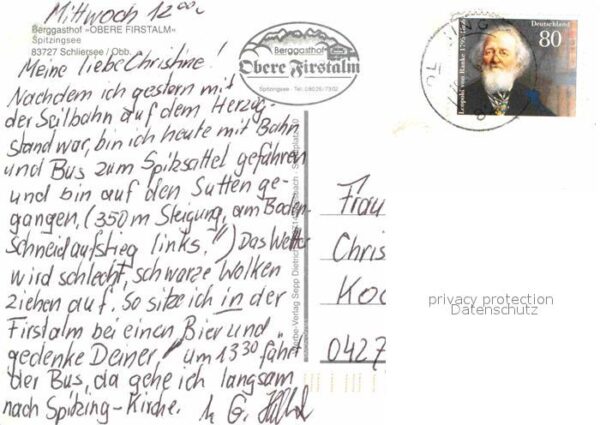 Mittwoch 12⁰⁰
Berggasthof »OBERE FIRSTALM«
Spitzingsee
83727 Schliersee / Obb.
Meine liebe Christine!
Nachdem ich gestern mit
der Seilbahn auf dem Herzog-
stand war, bin ich heute mit Bahn
und Bus zum Spitzsattel gefahren
und bin auf den Sutten ge-
gangen, (350 m Steigung, am Boden-
Schneidaufstieg links!") Das Wetter
wird schlecht, schwarze Wolken
ziehen auf. So sitze ich in der
Firstalm bei einen Bier und
gedenke Deiner! um 13 30 fährt
der Bus, da gehe ich langsam
nach Spitzing-Kirche.
G.
Berggasthof
Obere Firstalm
Spitzingsee · Tel. 08026/7302
Verlag Sepp Dietrich
Deutschland
80
Leopold von Ranke 1795
Frau
Chris
Koc
0427
privacy protection
Datenschutz